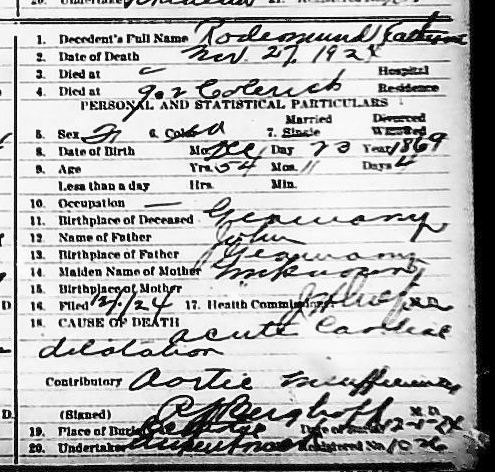 20. Undertaker
1. Decedent's Full Name Rodemund Catherine
2. Date of Death Nov. 27, 1924
3. Died at — Hospital
4. Died at 902 Colerick Residence
PERSONAL AND STATISTICAL PARTICULARS
Married Divorced
5. Sex F 6. Color W 7. Single Widowed
8. Date of Birth Mo. Dec Day 23 Year 1869
9. Age Yrs. 54 Mos. 11 Days 4
Less than a day Hrs. Min.
10. Occupation —
11. Birthplace of Deceased Germany
12. Name of Father John
13. Birthplace of Father Germany
14. Maiden Name of Mother Unknown
15. Birthplace of Mother
16. Filed 12/1/24 17. Health Commissioner
18. CAUSE OF DEATH acute Cardiac
dilatation
Contributory Aortic insufficiency
(Signed) Berghoff M. D.
19. Place of Burial Date of Burial 12-1-24
20. Undertaker Registered No. 1026